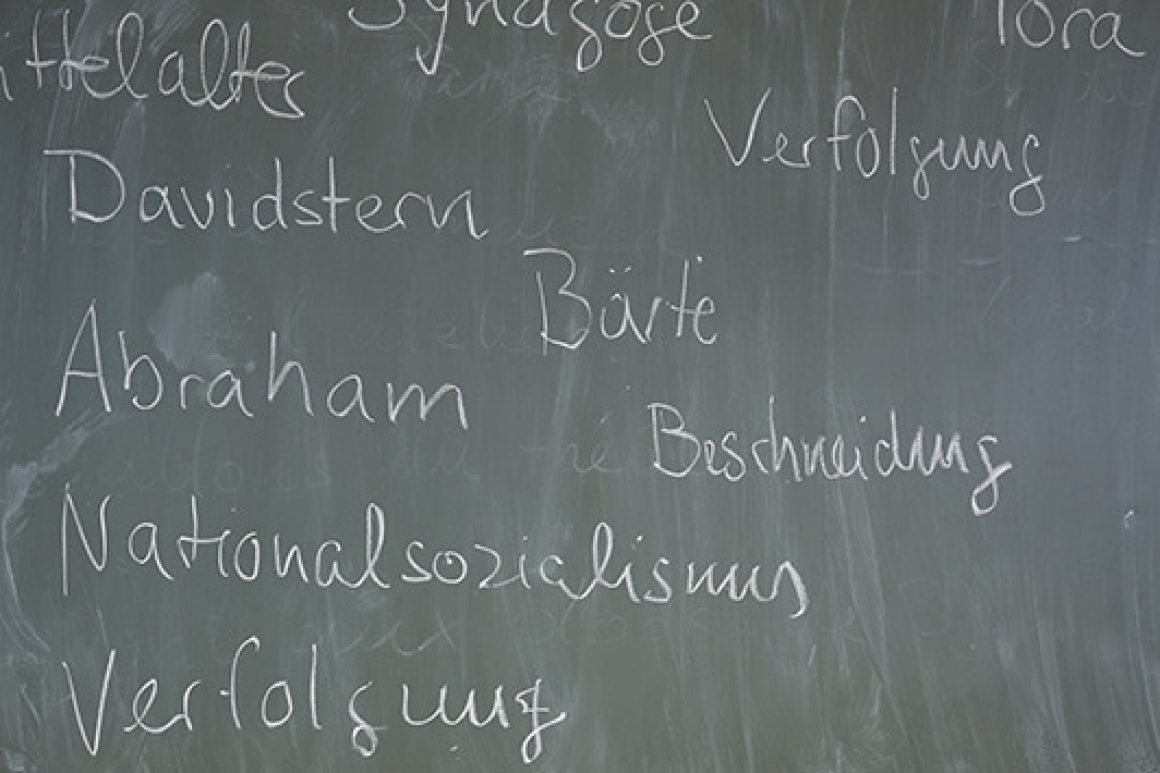 Synagoge
Tora
Mittelalter
Verfolgung
Davidstern
Bärte
Abraham
Beschneidung
Nationalsozialismus
Verfolgung